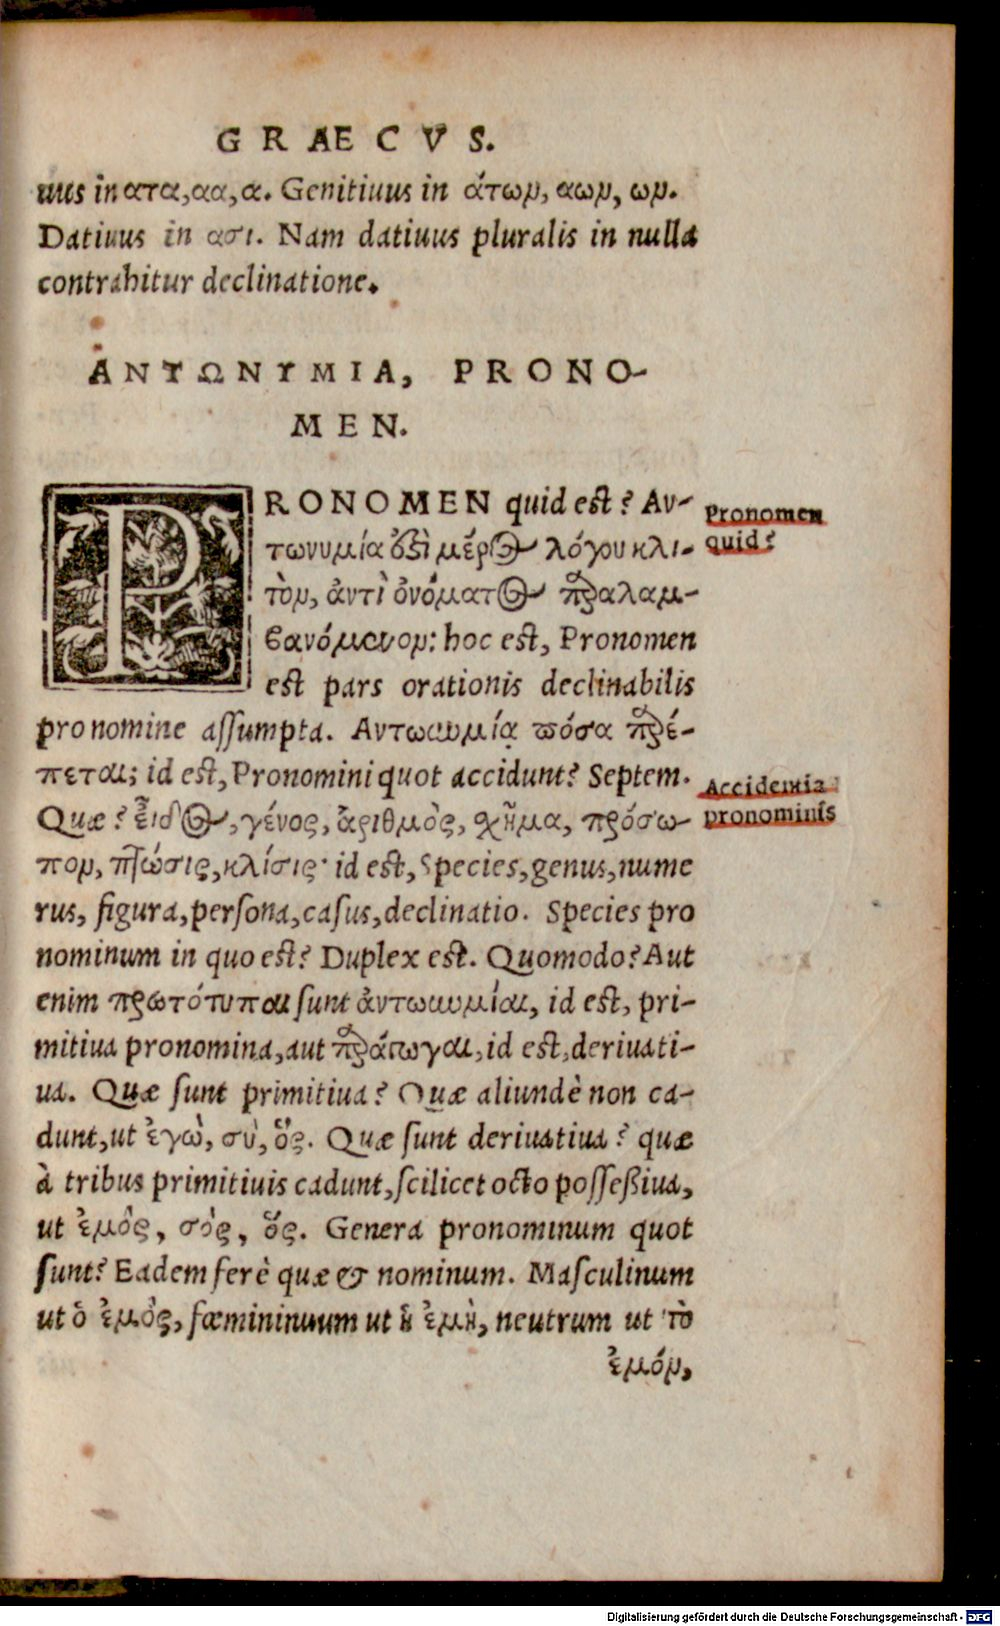 GRAECVS.
uus in ατα, αα, α. Genitiuus in άτωμ, αωμ, ωμ.
Datiuus in ασι. Nam datiuus pluralis in nulla
contrahitur declinatione.
ΑΝΤΩΝΥΜΙΑ, PRONO-
MEN.
PRONOMEN quid est? Αν-
τωνυμία ἐστὶ μέρος λόγου κλι-
τὸν, ἀντὶ ὀνόματος παραλαμ-
βανόμενον: hoc est, Pronomen
est pars orationis declinabilis
pro nomine assumpta. Αντωνυμίᾳ πόσα παρέ-
πεται; id est, Pronomini quot accidunt? Septem.
Quæ? εἶδος, γένος, ἀριθμὸς, σχῆμα, πρόσω-
πον, πτῶσις, κλίσις· id est, Species, genus, nume
rus, figura, persona, casus, declinatio. Species pro
nominum in quo est? Duplex est. Quomodo? Aut
enim πρωτότυποι sunt ἀντωνυμίαι, id est, pri-
mitiua pronomina, aut παράγωγαι, id est, deriuati-
ua. Quæ sunt primitiua? Quæ aliundè non ca-
dunt, ut ἐγὼ, σὺ, ὅς. Quæ sunt deriuatiua? quæ
à tribus primitiuis cadunt, scilicet octo possessiua,
ut ἐμὸς, σὸς, ὅς. Genera pronominum quot
sunt? Eadem ferè quæ & nominum. Masculinum
ut ὁ ἐμὸς, fœmininuum ut ἡ ἐμὴ, neutrum ut τὸ
ἐμόν,
Pronomen
quid?
Accidentia
pronominis
Digitalisierung gefördert durch die Deutsche Forschungsgemeinschaft - DFG